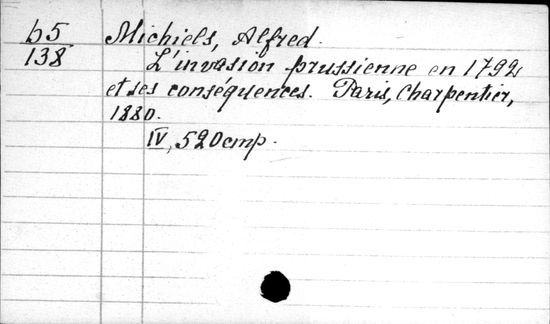 b5 Michiels, Alfred.
138 L'invasion prussienne en 1792
et ses conséquences. Paris, Charpentier,
1880.
IV, 520 стр.